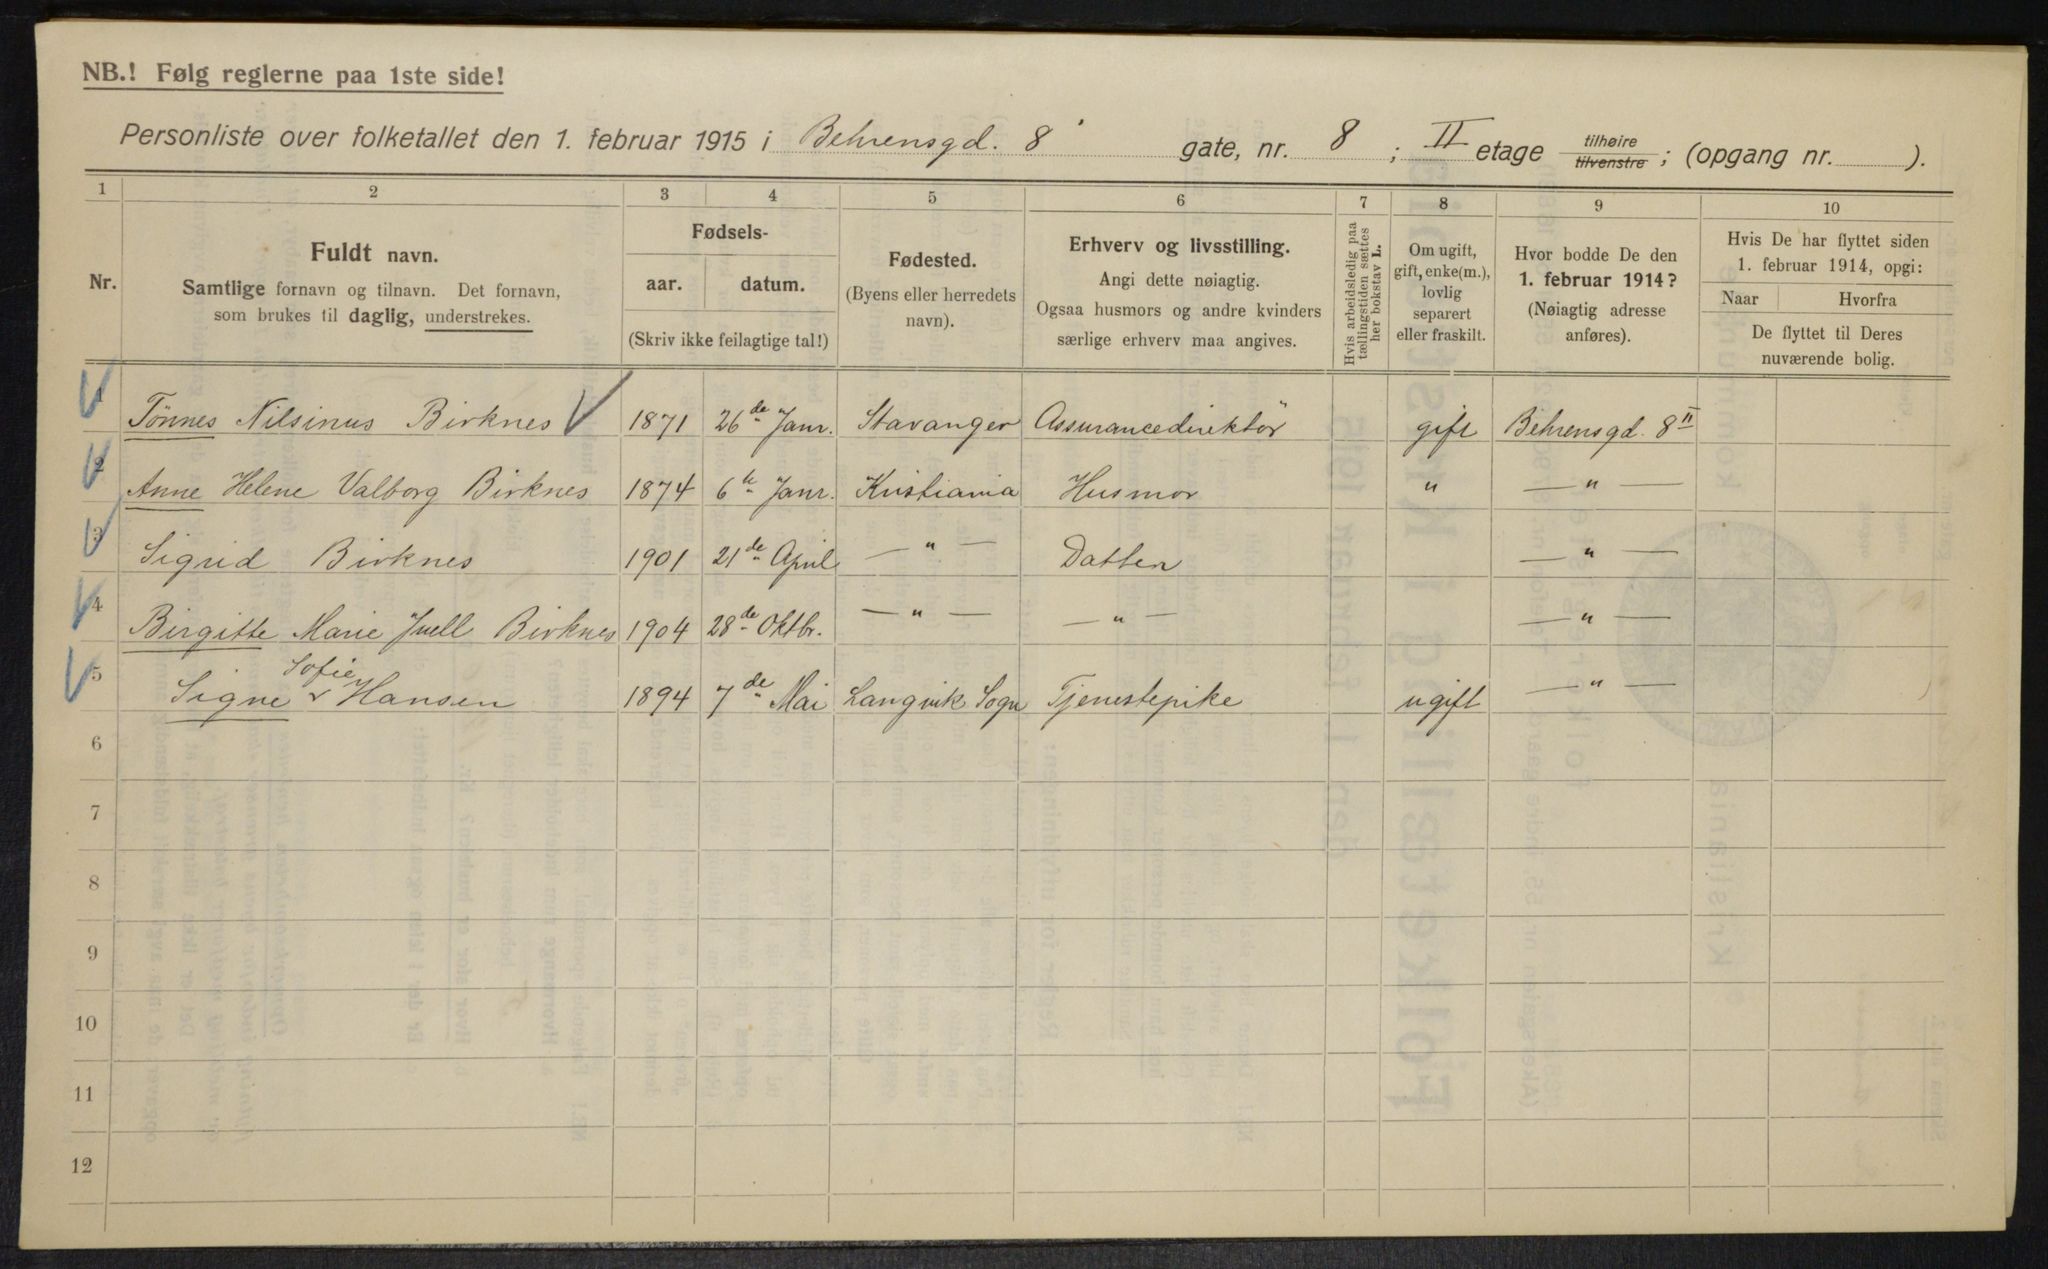 NB.! Følg reglerne paa 1ste side!
Personliste over folketallet den 1. februar 1915 i Behrensgd. 8 gate, nr. 8; II etage tilhøire tilvenstre; (opgang nr. ).
1 2 3 4 5 6 7 8 9 10
Nr.
Fuldt navn.
Samtlige fornavn og tilnavn. Det fornavn,
som brukes til daglig, understrekes.
Fødsels-
aar. datum.
(Skriv ikke feilagtige tal!)
Fødested.
(Byens eller herredets
navn).
Erhverv og livsstilling.
Angi dette nøiagtig.
Ogsaa husmors og andre kvinders
særlige erhverv maa angives.
Hvis arbeidsledig paa
tællingstiden sættes
her bokstav L.
Om ugift,
gift, enke(m.),
lovlig
separert
eller fraskilt.
Hvor bodde De den
1. februar 1914?
(Nøiagtig adresse
anføres).
Hvis De har flyttet siden
1. februar 1914, opgi:
Naar Hvorfra
De flyttet til Deres
nuværende bolig.
1 Tønnes Nilsinus Birknes 1871 26de Janr. Stavanger Assurancedirektör gift Behrensgd. 8 II
2 Anne Helene Valborg Birknes 1874 6te Janr. Kristiania Husmor " — " —
3 Sigrid Birknes 1901 21de April — " — Datter — " —
4 Birgitte Marie Juell Birknes 1904 28de Oktbr. — " — — " — — " —
5 Signe Sofie Hansen 1894 7de Mai Langvik Sogn Tjenestepike ugift — " —
6
7
8
9
10
11
12